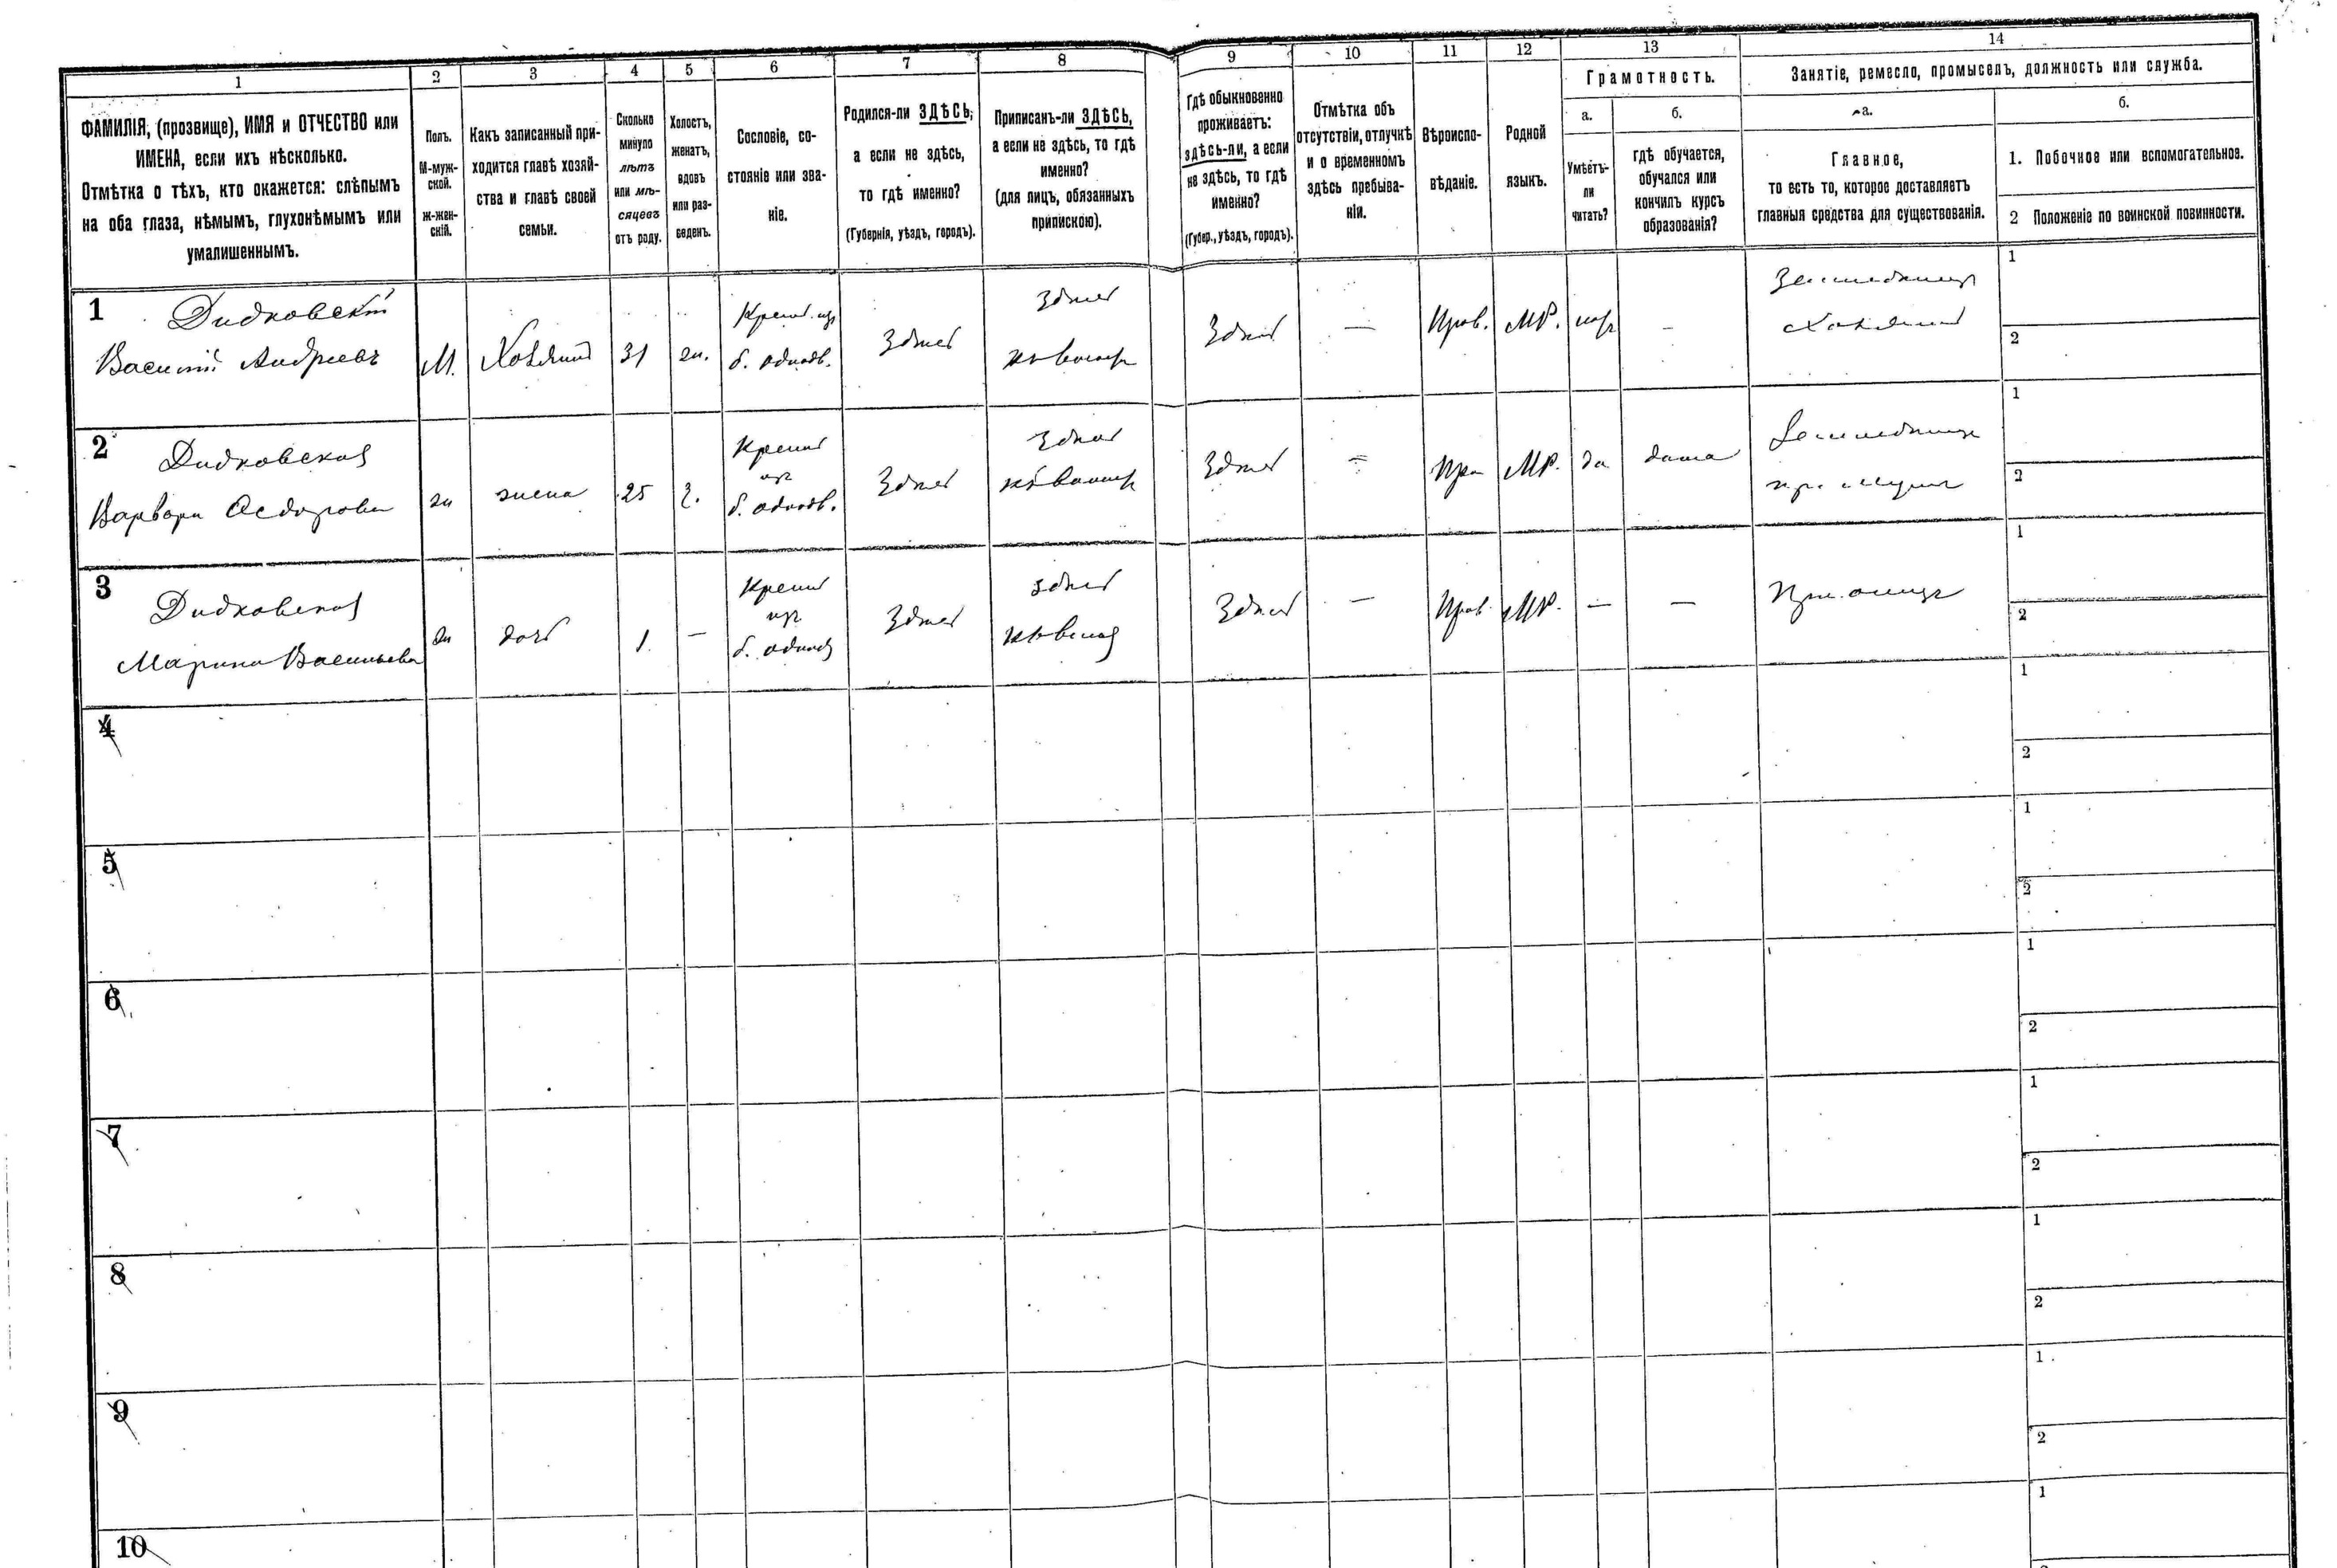 1
2
3
4
5
6
7
8
9
10
11
12
13
14
ФАМИЛІЯ, (прозвище), ИМЯ и ОТЧЕСТВО или
ИМЕНА, если ихъ нѣсколько.
Отмѣтка о тѣхъ, кто окажется: слѣпымъ
на оба глаза, нѣмымъ, глухонѣмымъ или
умалишеннымъ.
Полъ.
М-муж-
ской.
ж-жен-
скій.
Какъ записанный при-
ходится главѣ хозяй-
ства и главѣ своей
семьи.
Сколько
минуло
лѣтъ
или мѣ-
сяцевъ
отъ роду.
Холостъ,
женатъ,
вдовъ
или раз-
веденъ.
Сословіе, со-
стояніе или зва-
ніе.
Родился-ли ЗДѢСЬ,
а если не здѣсь,
то гдѣ именно?
(Губернія, уѣздъ, городъ).
Приписанъ-ли ЗДѢСЬ,
а если не здѣсь, то гдѣ
именно?
(для лицъ, обязанныхъ
припискою).
Гдѣ обыкновенно
проживаетъ:
здѣсь-ли, а если
не здѣсь, то гдѣ
именно?
(Губер., уѣздъ, городъ).
Отмѣтка объ
отсутствіи, отлучкѣ
и о временномъ
здѣсь пребыва-
ніи.
Вѣроиспо-
вѣданіе.
Родной
языкъ.
Грамотность.
а.
Умѣетъ-
ли
читать?
б.
гдѣ обучается,
обучался или
кончилъ курсъ
образованія?
Занятіе, ремесло, промыселъ, должность или служба.
а.
Главное,
то есть то, которое доставляетъ
главныя средства для существованія.
б.
1. Побочное или вспомогательное.
2 Положеніе по воинской повинности.
1
Дидковскій
Василій Андреевъ
М.
Хозяинъ
31
ж.
Крест. изъ
б. однодв.
Здѣсь
Здѣсь
Здѣсь
—
Прав.
МР.
—
Хозяинъ
1
2
2
Дидковская
Варвара Федорова
ж
жена
25
З.
Крест
изъ
б. однодв.
Здѣсь
Здѣсь
Здѣсь
Пра
МР.
да
дома
1
2
3
Дидковская
Марина Васильева
ж
дочь
1
—
Крест
изъ
б. однод
Здѣсь
здѣсь
Здѣсь
—
Прав.
МР.
—
—
1
2
4
1
2
5
1
2
6
1
2
7
1
2
8
1
2
9
1
2
10
1